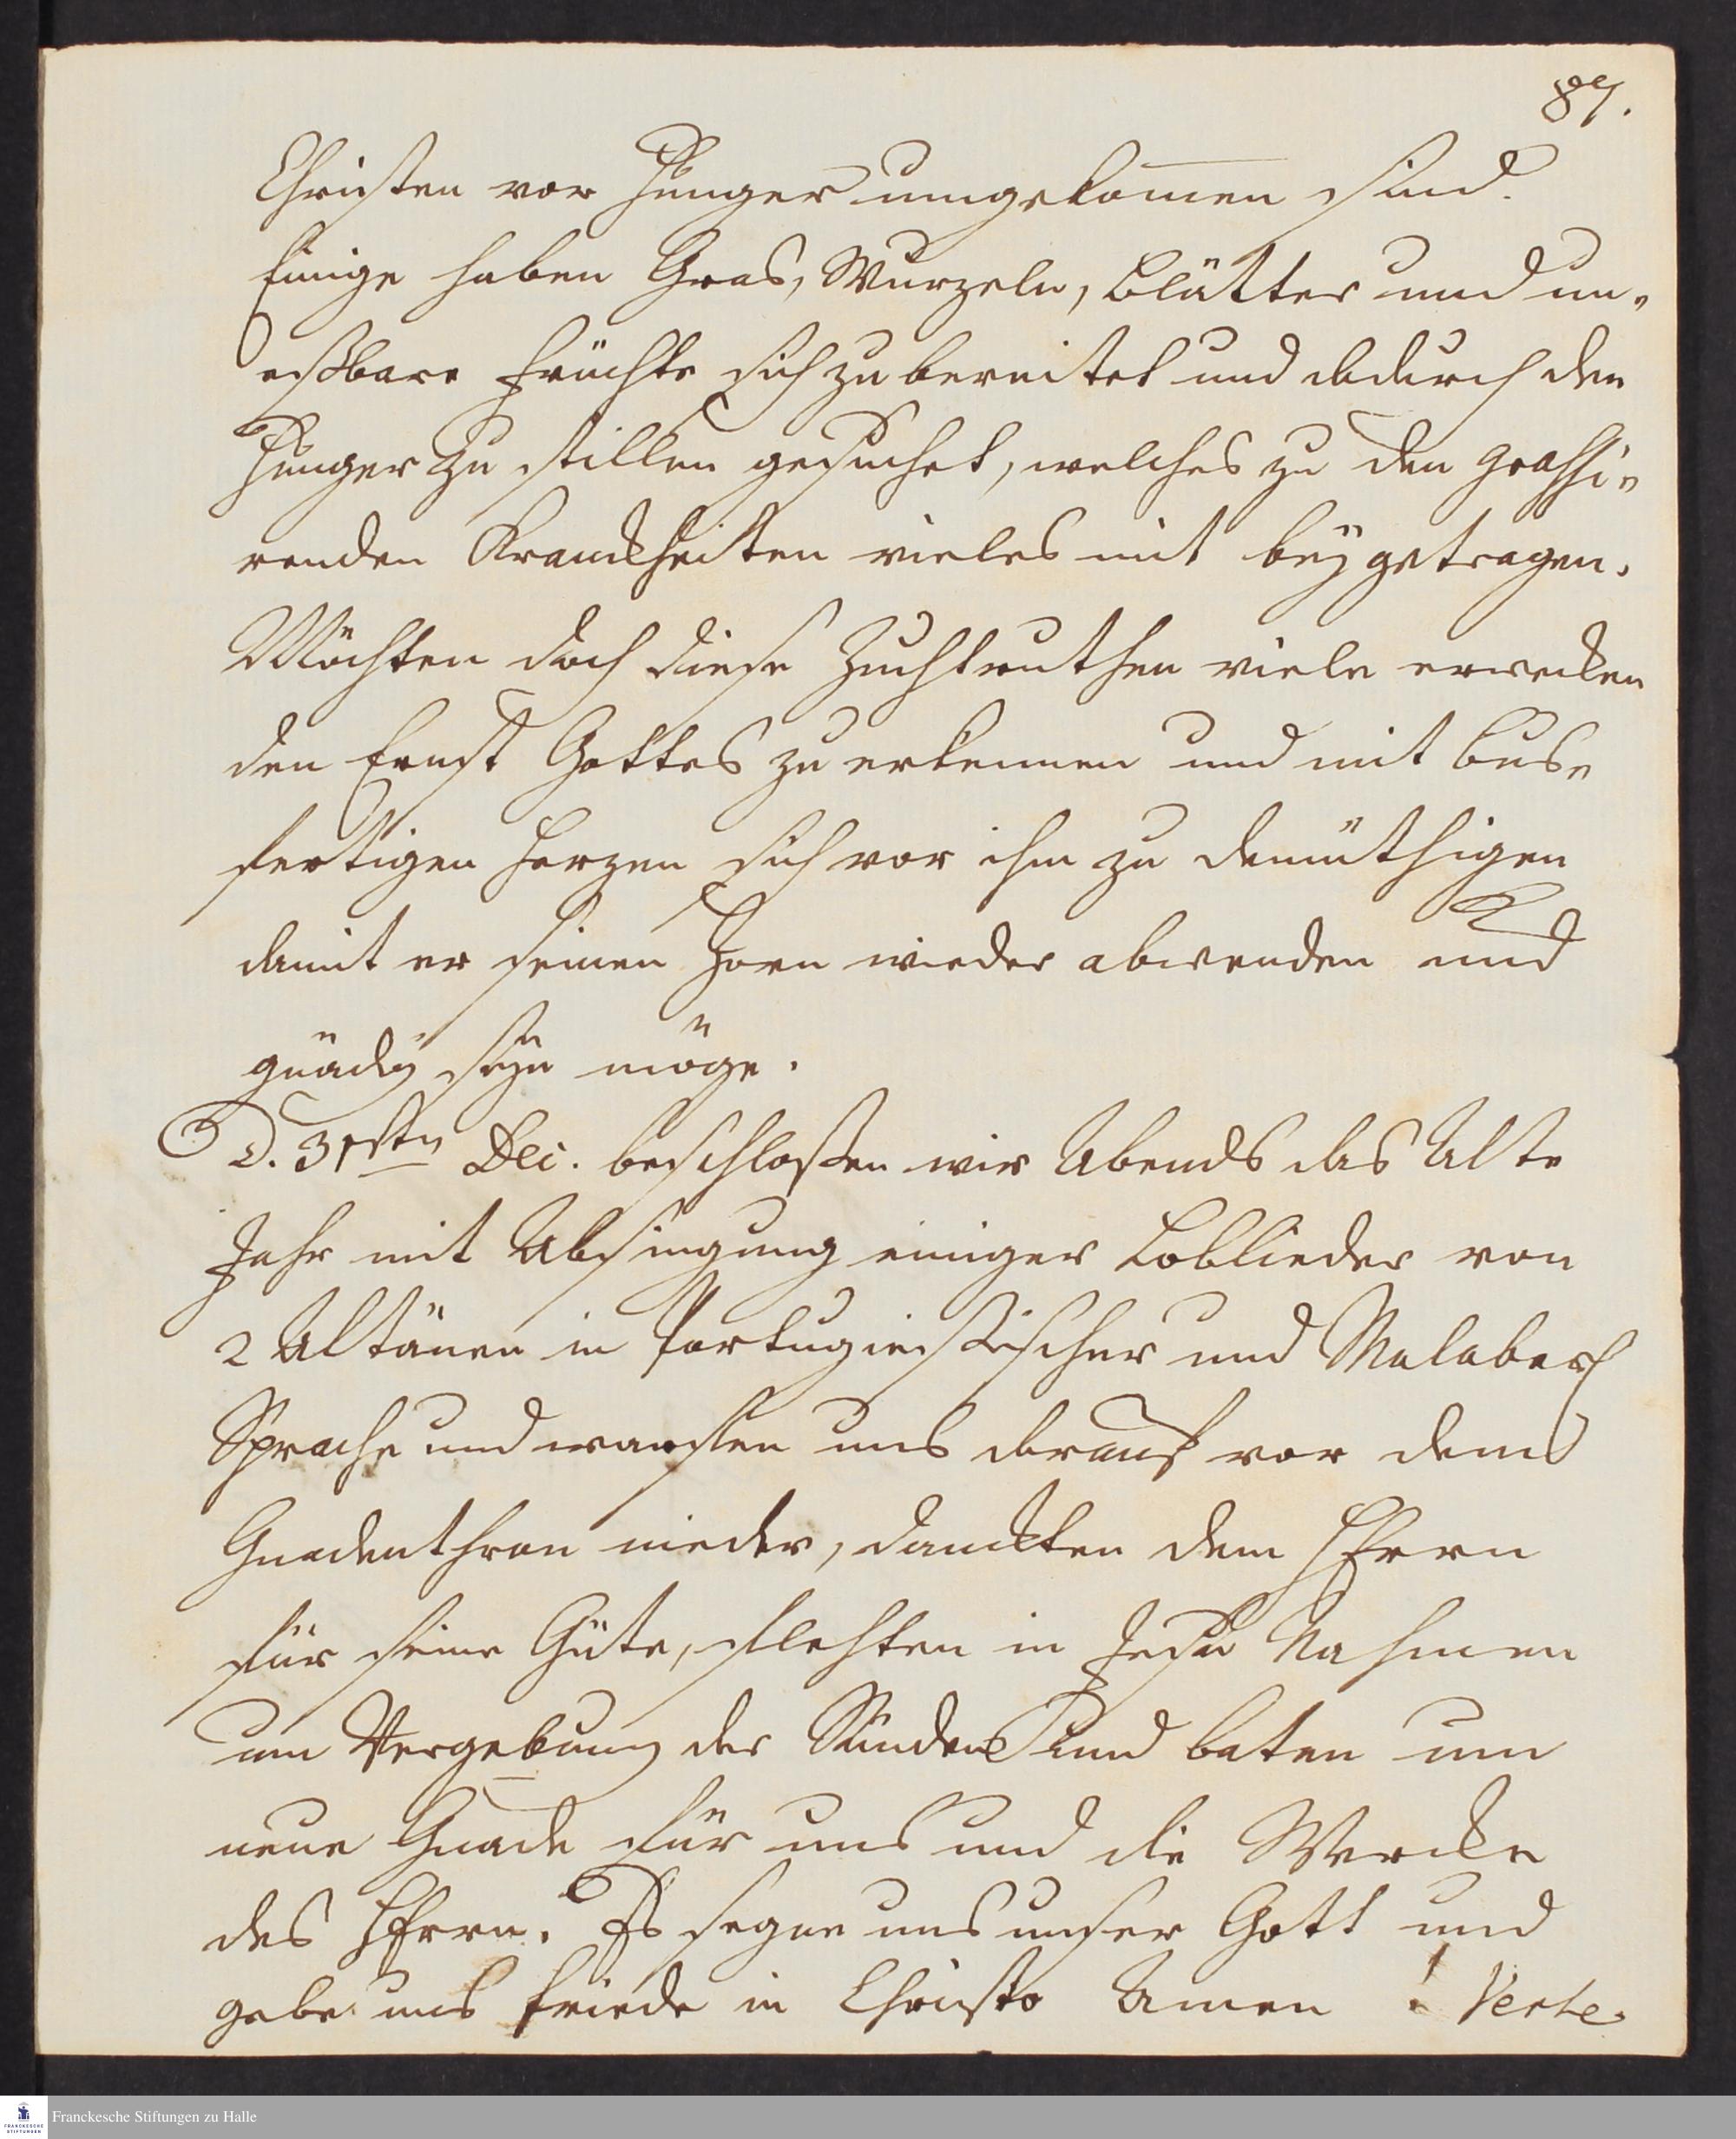 87.
Christen vor Hunger umgekom̅en sind.
Einige haben Gras, Wurzeln, Blätter und un-
eßbare Früchte sich zubereitet und dadurch den
Hunger zu stillen gesuchet, welches zu den grassi-
renden Kranckheiten vieles mit beÿgetragen.
Möchten doch diese Zuchtruthen viele erwecken
den Ernst Gottes zu erkennen und mit bus-
fertigen Herzen sich vor ihm zu demüthigen
damit er seinen Zorn wieder abwenden und
gnädig seÿn möge.
D. 31sten Dec. beschloßen wir Abends das Alte
Jahr mit Absingung einiger Loblieder von
2 Altänen in Portugiesischer und Malabarsch
Sprache und warffen uns darauf vor dem
Gnadenthron nieder, danckten dem HErrn
für seine Güte, flehten in Jesu Nahmen
um Vergebung der Sünden und baten um
neue Gnade für uns und die Wercke
des HErrn. Es segne uns unser Gott und
gebe uns Friede in Christo Amen! Verte.
Franckesche Stiftungen zu Halle
FRANCKESCHE
STIFTUNGEN